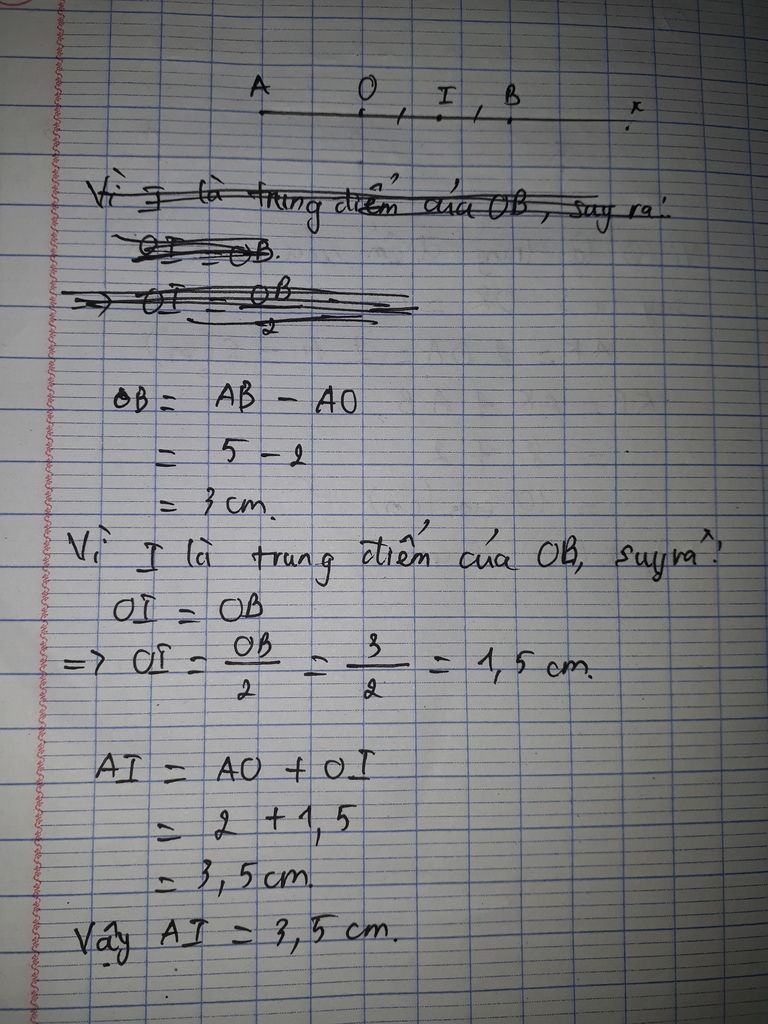 A O I B x
Vì I là trung điểm của OB, suy ra:
OI = OB.
=> OI = OB / 2
OB = AB - AO
= 5 - 2
= 3 cm.
Vì I là trung điểm của OB, suy ra:
OI = OB
=> OI = OB / 2 = 3 / 2 = 1,5 cm.
AI = AO + OI
= 2 + 1,5
= 3,5 cm.
Vậy AI = 3,5 cm.